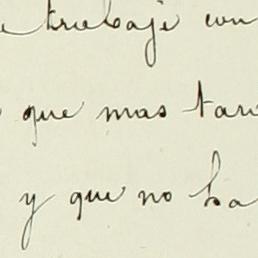 trabaje con
que mas tar
y que no ha